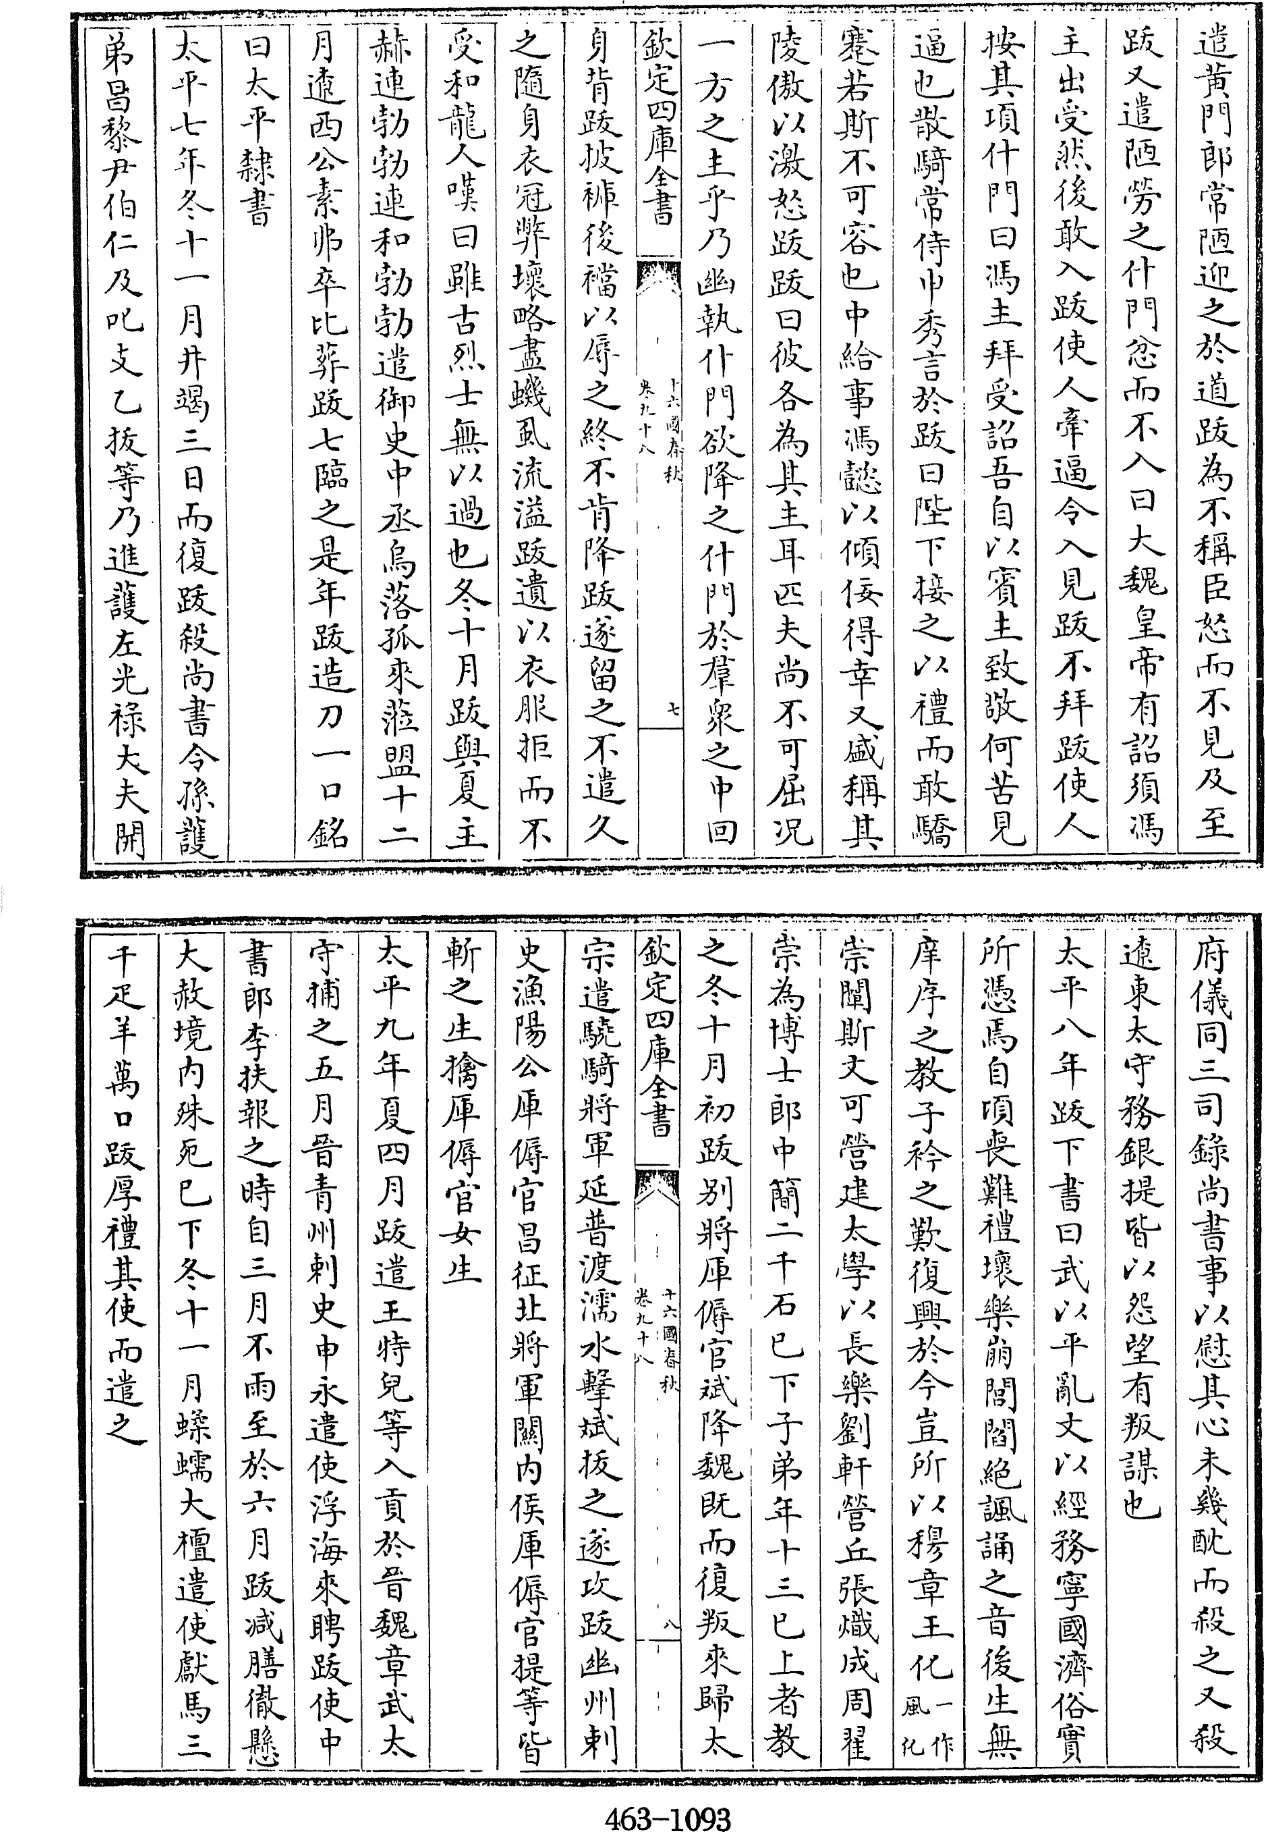 遣黄門郎常陋迎之於道跋為不稱臣怒而不見及至
跋又遣陋勞之什門忿而不入曰大魏皇帝有詔須馮
主出受然後敢入跋使人牽逼令入見跋不拜跋使人
按其項什門曰馮主拜受詔吾自以賓主致敬何苦見
逼也散騎常侍申秀言於跋曰陛下接之以禮而敢驕
蹇若斯不可容也中給事馮懿以傾佞得幸又盛稱其
陵傲以激怒跋跋曰彼各為其主耳匹夫尚不可屈况
一方之主乎乃幽執什門欲降之什門於羣衆之中回
欽定四庫全書
十六國春秋
卷九十八
七
身背跋披褲後襠以辱之終不肯降跋遂留之不遣久
之隨身衣冠弊壞略盡蟣虱流溢跋遺以衣服拒而不
受和龍人嘆曰雖古烈士無以過也冬十月跋與夏主
赫連勃勃連和勃勃遣御史中丞烏落孤來蒞盟十二
月遼西公素弗卒比葬跋七臨之是年跋造刀一口銘
曰太平隸書
太平七年冬十一月井竭三日而復跋殺尚書令孫護
弟昌黎尹伯仁及叱支乙拔等乃進護左光祿大夫開
府儀同三司錄尚書事以慰其心未幾酖而殺之又殺
遼東太守務銀提皆以怨望有叛謀也
太平八年跋下書曰武以平亂文以經務寧國濟俗實
所憑焉自頃喪難禮壞樂崩閭閻絶諷誦之音後生無
庠序之教子衿之歎復興於今豈所以穆章王化一作風化
崇闡斯文可營建太學以長樂劉軒營丘張熾成周翟
崇為博士郎中簡二千石已下子弟年十三已上者教
之冬十月初跋别將厙傉官斌降魏既而復叛來歸太
欽定四庫全書
十六國春秋
卷九十八
八
宗遣驍騎將軍延普渡濡水擊斌拔之遂攻跋幽州刺
史漁陽公厙傉官昌征北將軍關内侯厙傉官提等皆
斬之生擒厙傉官女生
太平九年夏四月跋遣王特兒等入貢於晉魏章武太
守捕之五月晉青州刺史申永遣使浮海來聘跋使中
書郎李扶報之時自三月不雨至於六月跋減膳徹懸
大赦境内殊死已下冬十一月蝚蠕大檀遣使獻馬三
千疋羊萬口跋厚禮其使而遣之
463-1093